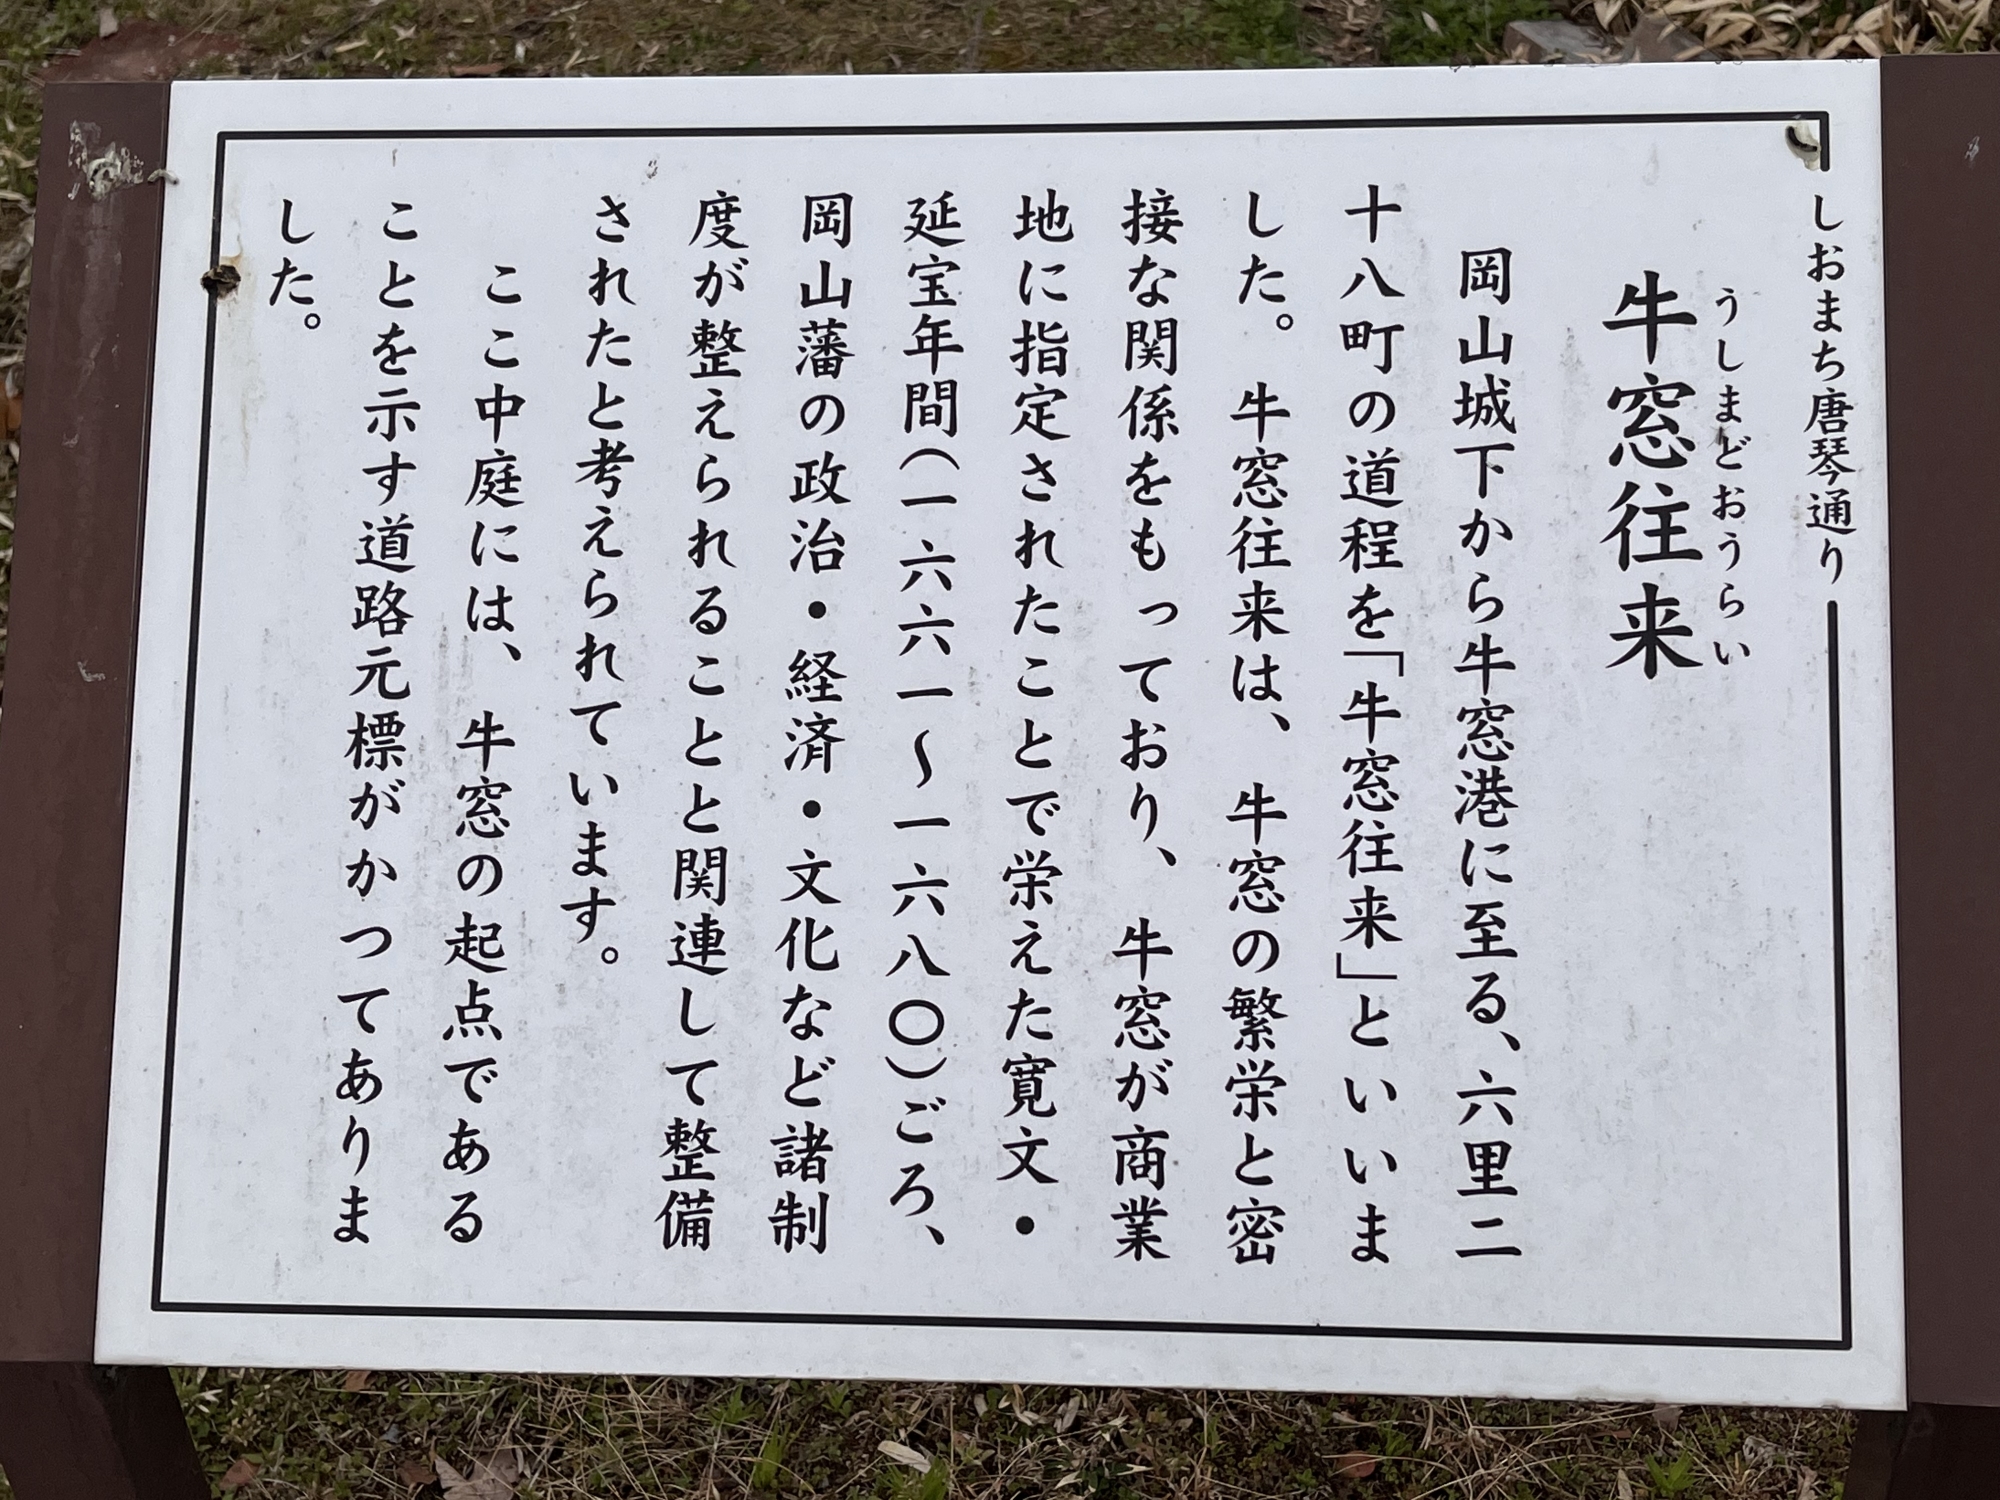 しおまち唐琴通り
うしまどおうらい
牛窓往来
岡山城下から牛窓港に至る、六里二
十八町の道程を「牛窓往来」といいま
した。牛窓往来は、牛窓の繁栄と密
接な関係をもっており、牛窓が商業
地に指定されたことで栄えた寛文・
延宝年間(一六六一〜一六八〇)ごろ、
岡山藩の政治・経済・文化など諸制
度が整えられることと関連して整備
されたと考えられています。
ここ中庭には、牛窓の起点である
ことを示す道路元標がかつてありま
した。